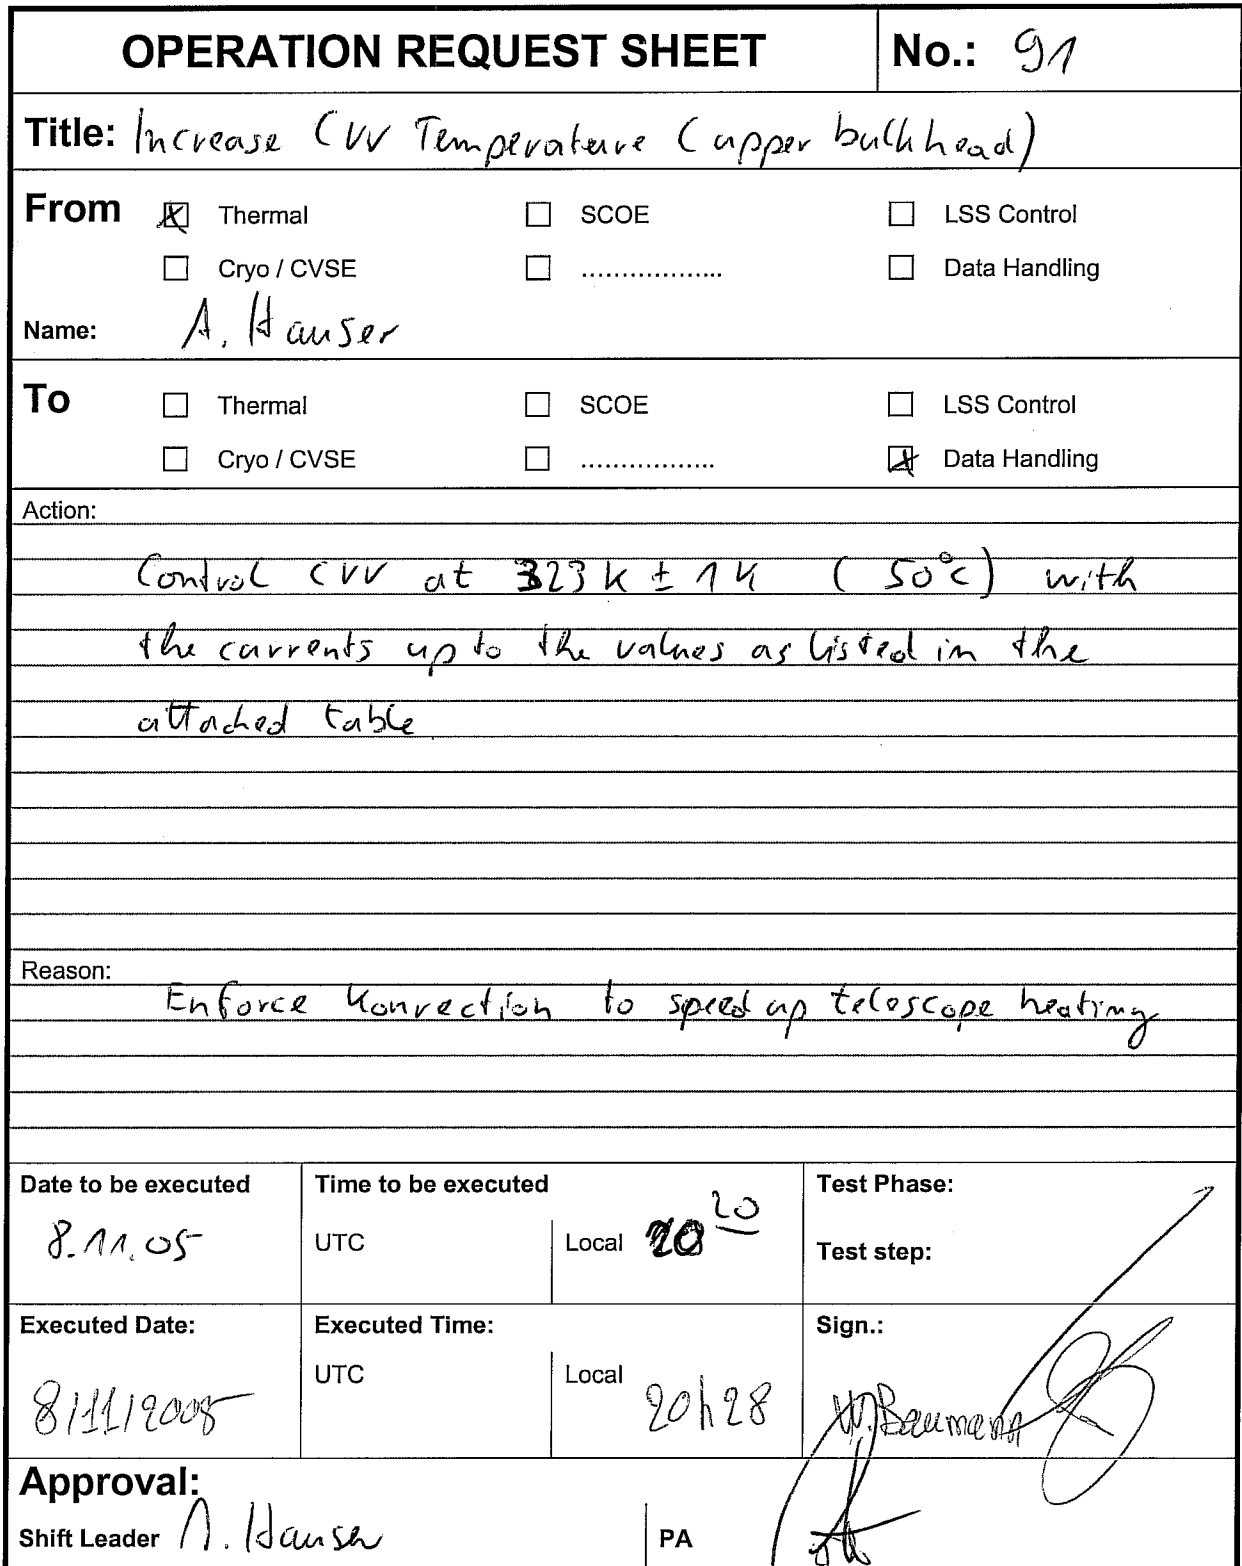 OPERATION REQUEST SHEET No.: 91
Title: Increase CVV Temperature (upper bulkhead)
From Thermal SCOE LSS Control
Cryo / CVSE .................. Data Handling
Name: A. Hauser
To Thermal SCOE LSS Control
Cryo / CVSE ................. Data Handling
Action:
Control CVV at 323 K ± 1 K ( 50°C) with
the currents up to the values as listed in the
attached table
Reason:
Enforce Konvection to speed up telescope heating
Date to be executed Time to be executed Test Phase:
8.11.05 UTC Local 20 20
Test step:
Executed Date: Executed Time: Sign.:
8/11/2005 UTC Local 20h28 W. Baumann
Approval:
Shift Leader A. Hauser PA